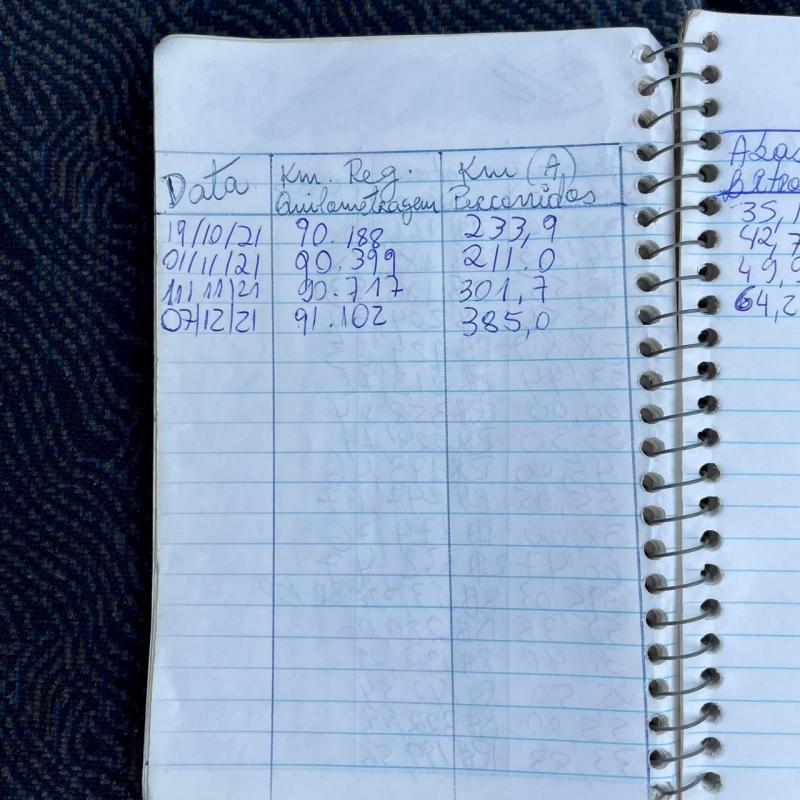 Data Km. Reg. Quilometragem Km (A) Percorridos
19/10/21 90.188 233,9
01/11/21 90.399 211.0
11/11/21 90.717 301,7
07/12/21 91.102 385,0
35,1
42,7
49,9
64,2